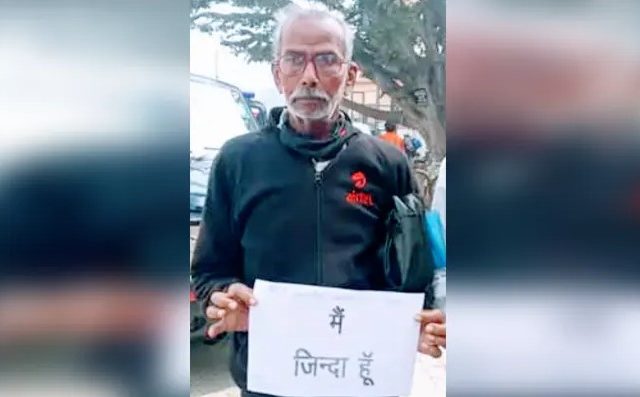 airtel
मैं
जिन्दा हूँ